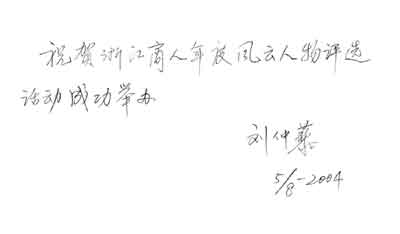 祝贺浙江商人年度风云人物评选
活动成功举办
刘仲藜
5/8-2004